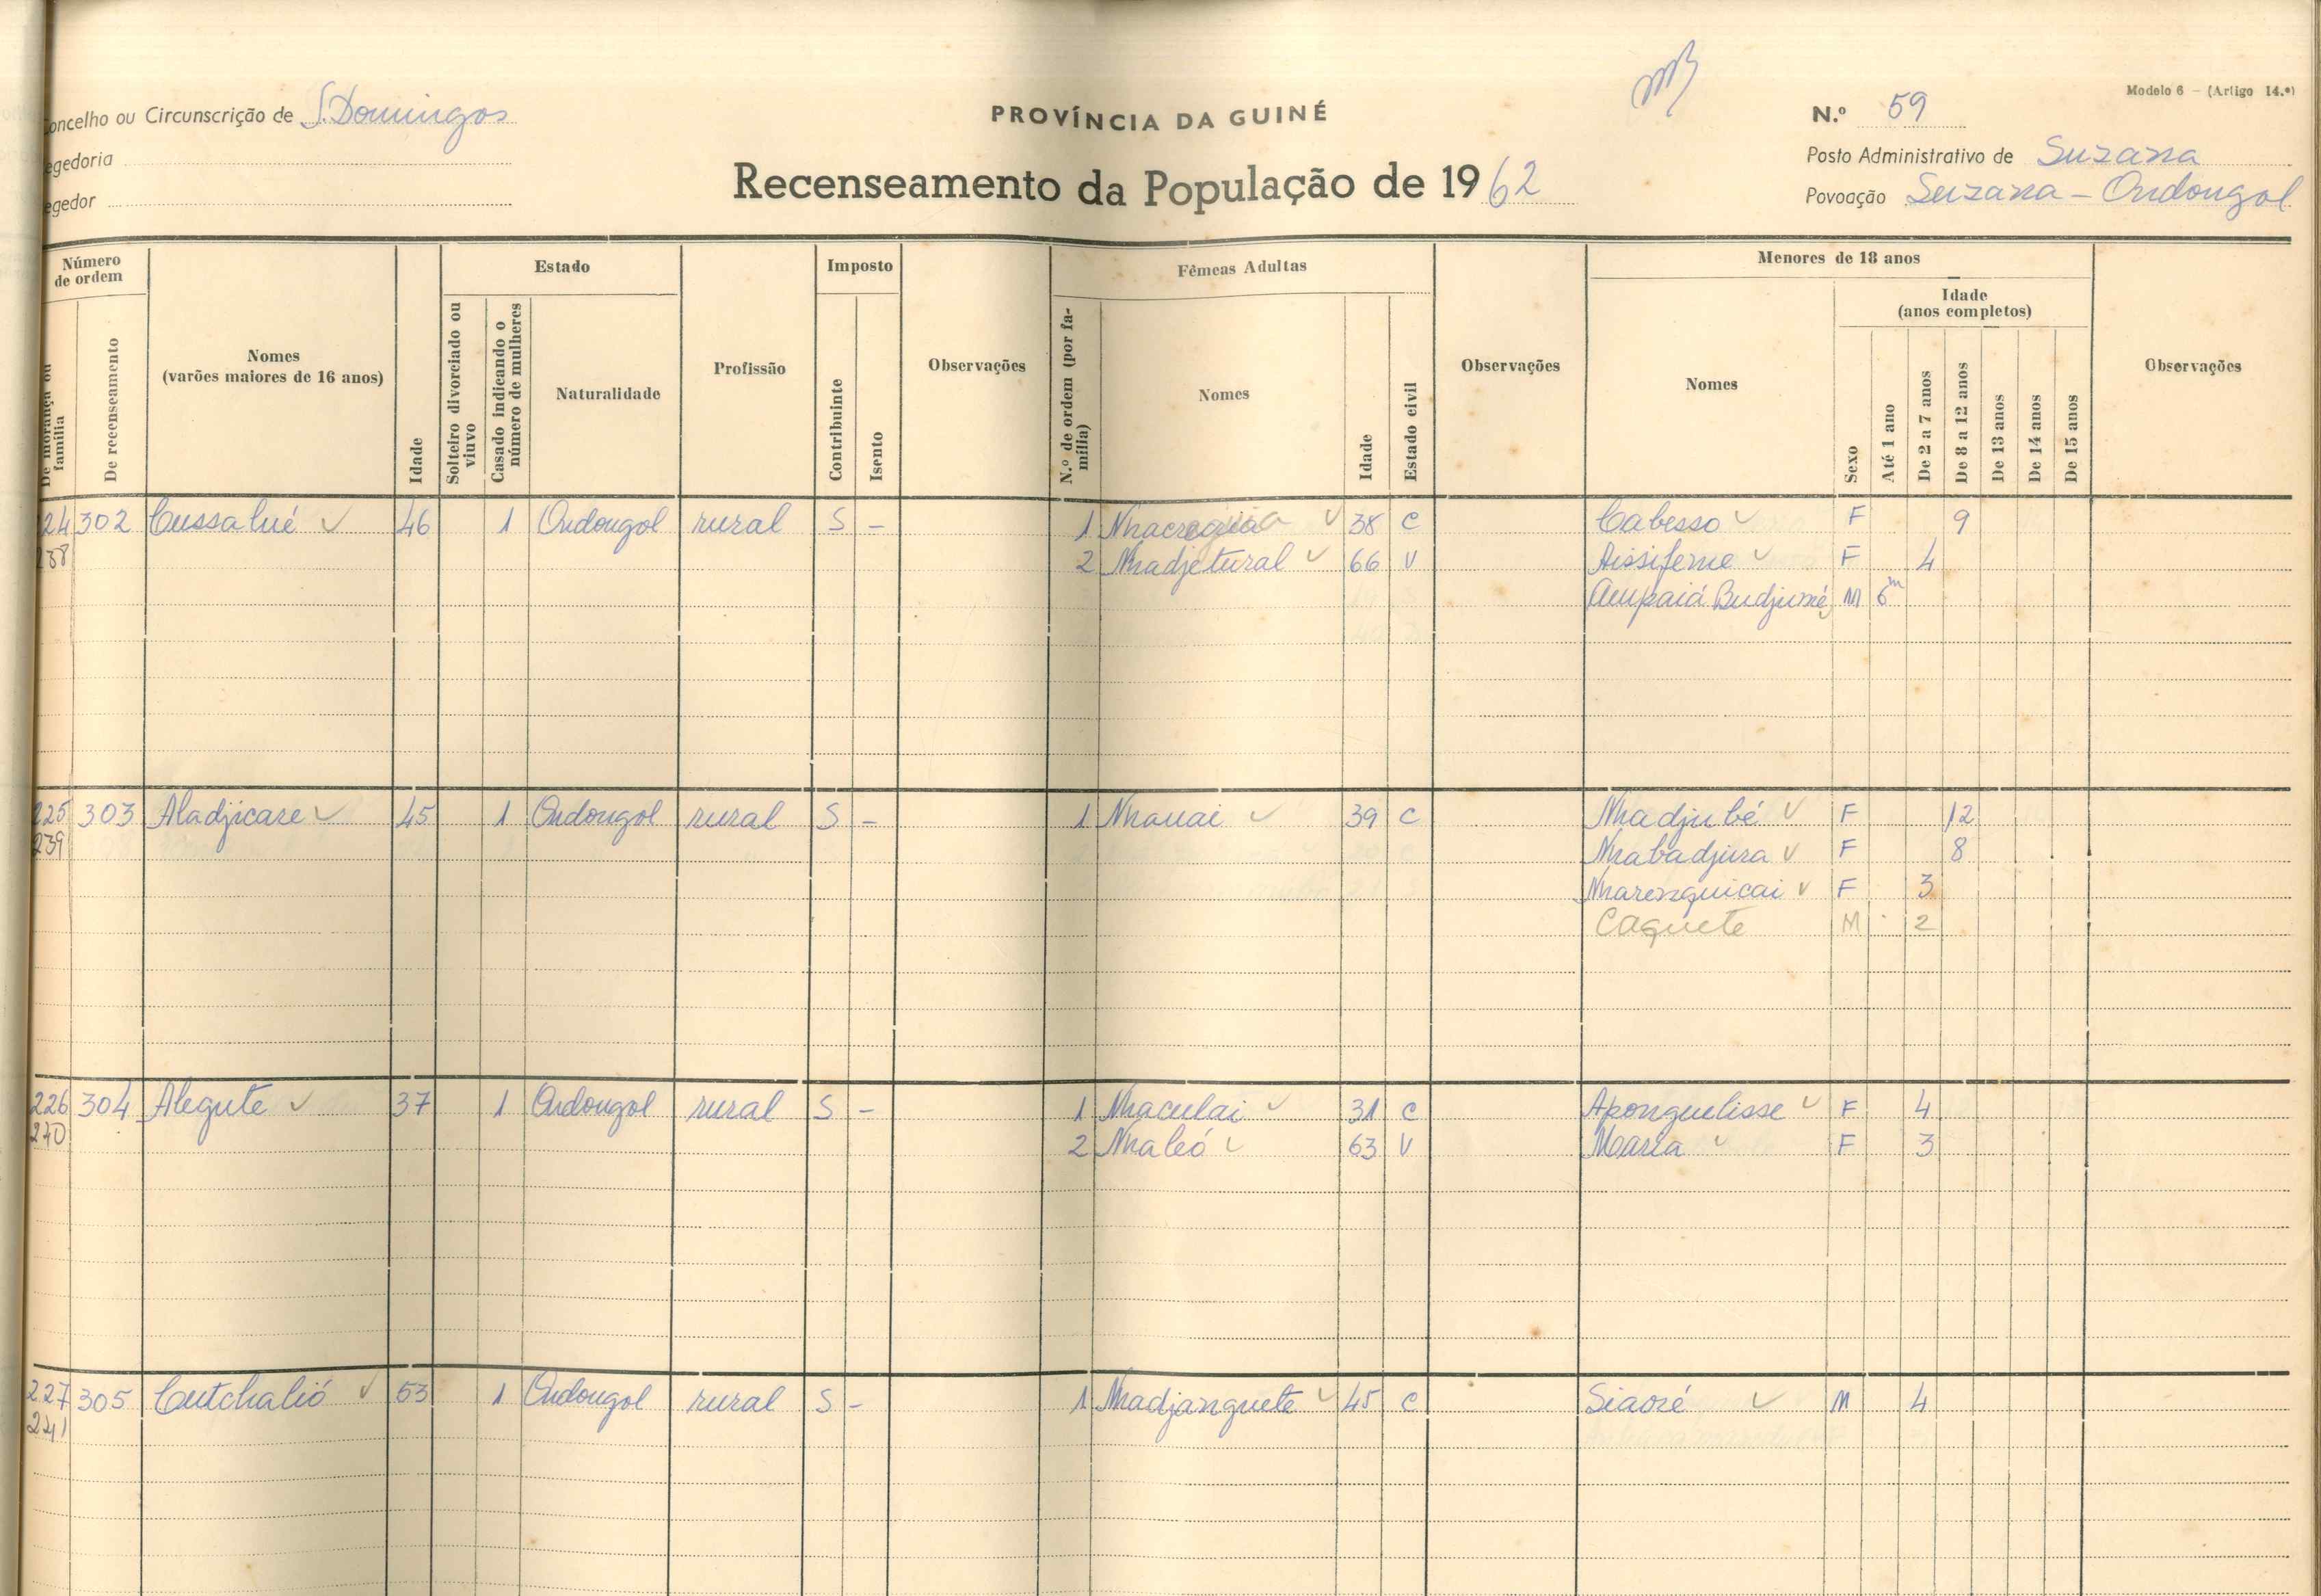 Modelo 6 — (Artigo 14.º)
Concelho ou Circunscrição de S. Domingos
PROVÍNCIA DA GUINÉ
N.º 59
egedoria
Posto Administrativo de Suzana
egedor
Recenseamento da População de 1962
Povoação Suzana - Ondongol
Número de ordem
Estado
Imposto
Fêmeas Adultas
Menores de 18 anos
De morança ou família
De recenseamento
Nomes (varões maiores de 16 anos)
Idade
Solteiro divorciado ou viuvo
Casado indicando o número de mulheres
Naturalidade
Profissão
Contribuinte
Isento
Observações
N.º de ordem (por família)
Nomes
Idade
Estado civil
Observações
Nomes
Sexo
Idade (anos completos)
Até 1 ano
De 2 a 7 anos
De 8 a 12 anos
De 13 anos
De 14 anos
De 15 anos
Observações
24 302 Cussalué 46 1 Ondongol rural S - 1 38 C Cabesso F 9
238 2 Nhadjetural 66 V Aissifeme F 4
Ampaiá Budjumé M 6m
225 303 Aladjicare 45 1 Ondongol rural S - 1 Nhauai 39 C Nhadjubé F 12
239 Nhabadjura F 8
Nharenguicai F 3
Caquete M 2
226 304 Alegute 37 1 Ondongol rural S - 1 Nhaculai 31 C Aponguelisse F 4
240 2 Nhaleó 63 V Maria F 3
227 305 Cutchalió 53 1 Ondongol rural S - 1 Nhadjanguete 45 C Siaoré M 4
241